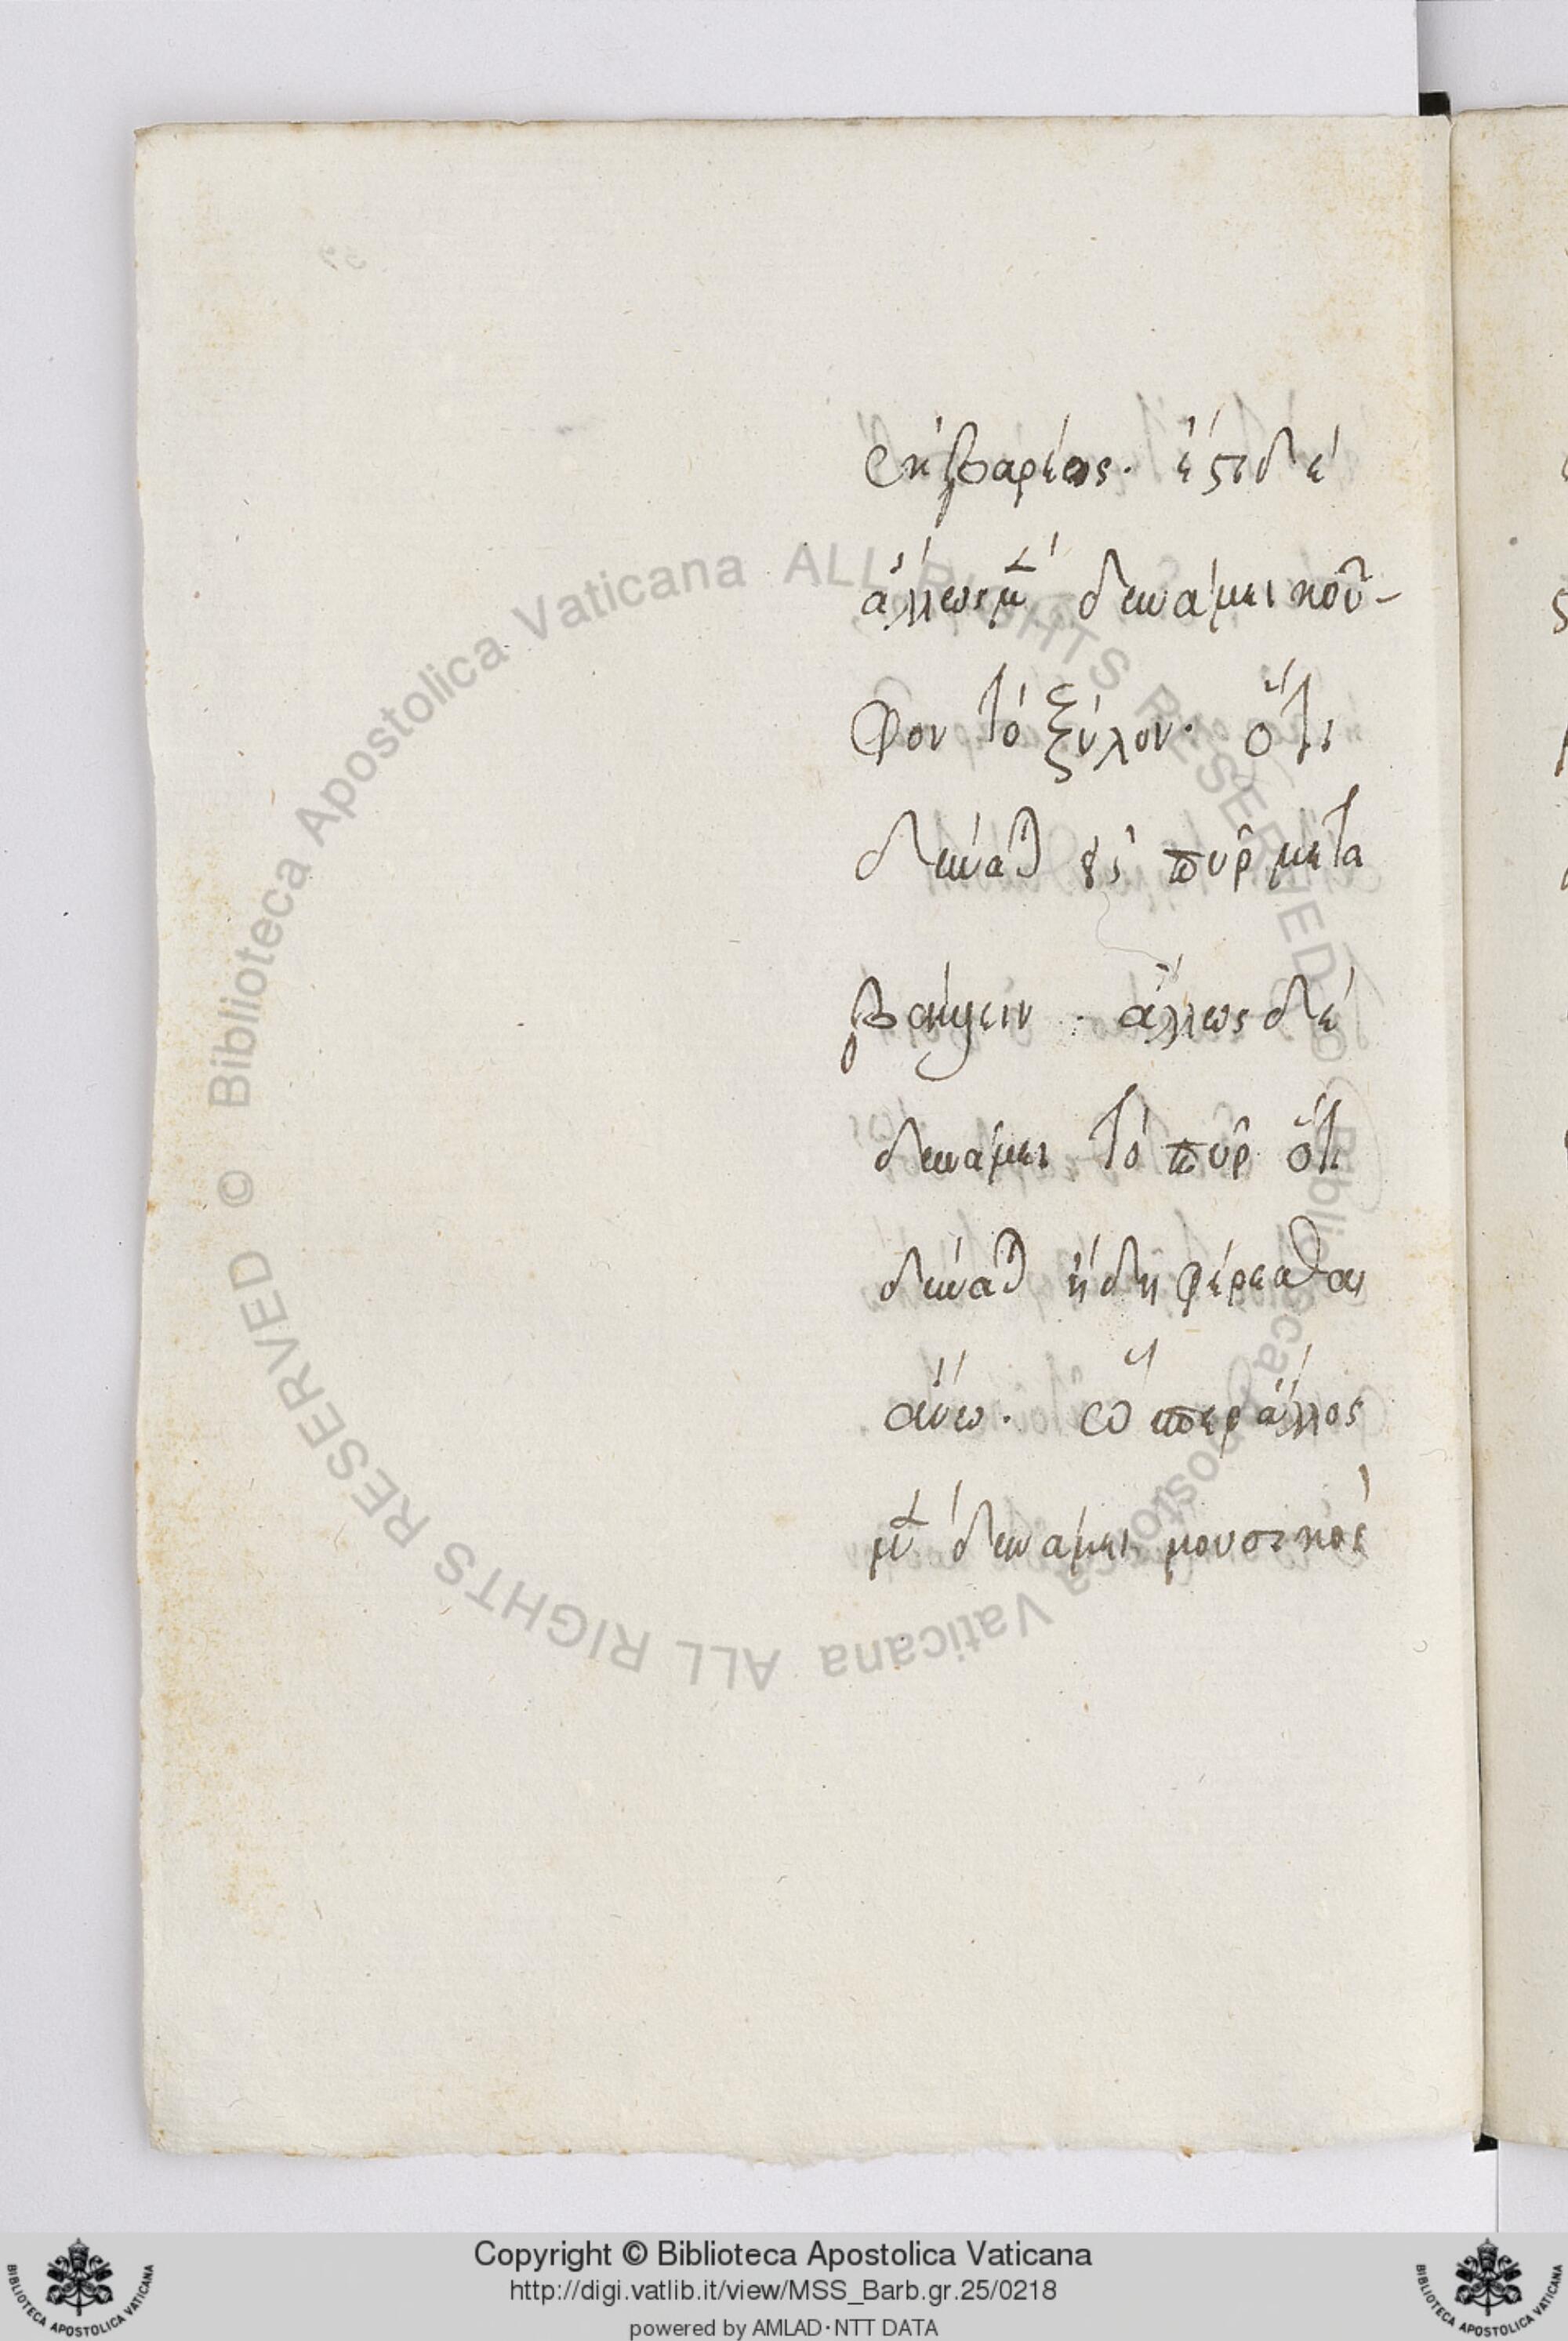 ἐκ βαρέος. ἔστι δέ
ἄλλως μὲν δυνάμει κοῦ-
φον τὸ ξύλον. ὅτι
δύναται εἰς πῦρ μετα
βάλλειν. ἄλλως δέ
δυνάμει τὸ πῦρ ὅτι
δύναται ἤδη φέρεσθαι
ἄνω. ὥσπερ ἄλλος
μὲν δυνάμει μουσικός
Copyright © Biblioteca Apostolica Vaticana
http://digi.vatlib.it/view/MSS_Barb.gr.25/0218
powered by AMLAD·NTT DATA
© Biblioteca Apostolica Vaticana ALL RIGHTS RESERVED
© Biblioteca Apostolica Vaticana ALL RIGHTS RESERVED
BIBLIOTECA APOSTOLICA VATICANA
BIBLIOTECA APOSTOLICA VATICANA